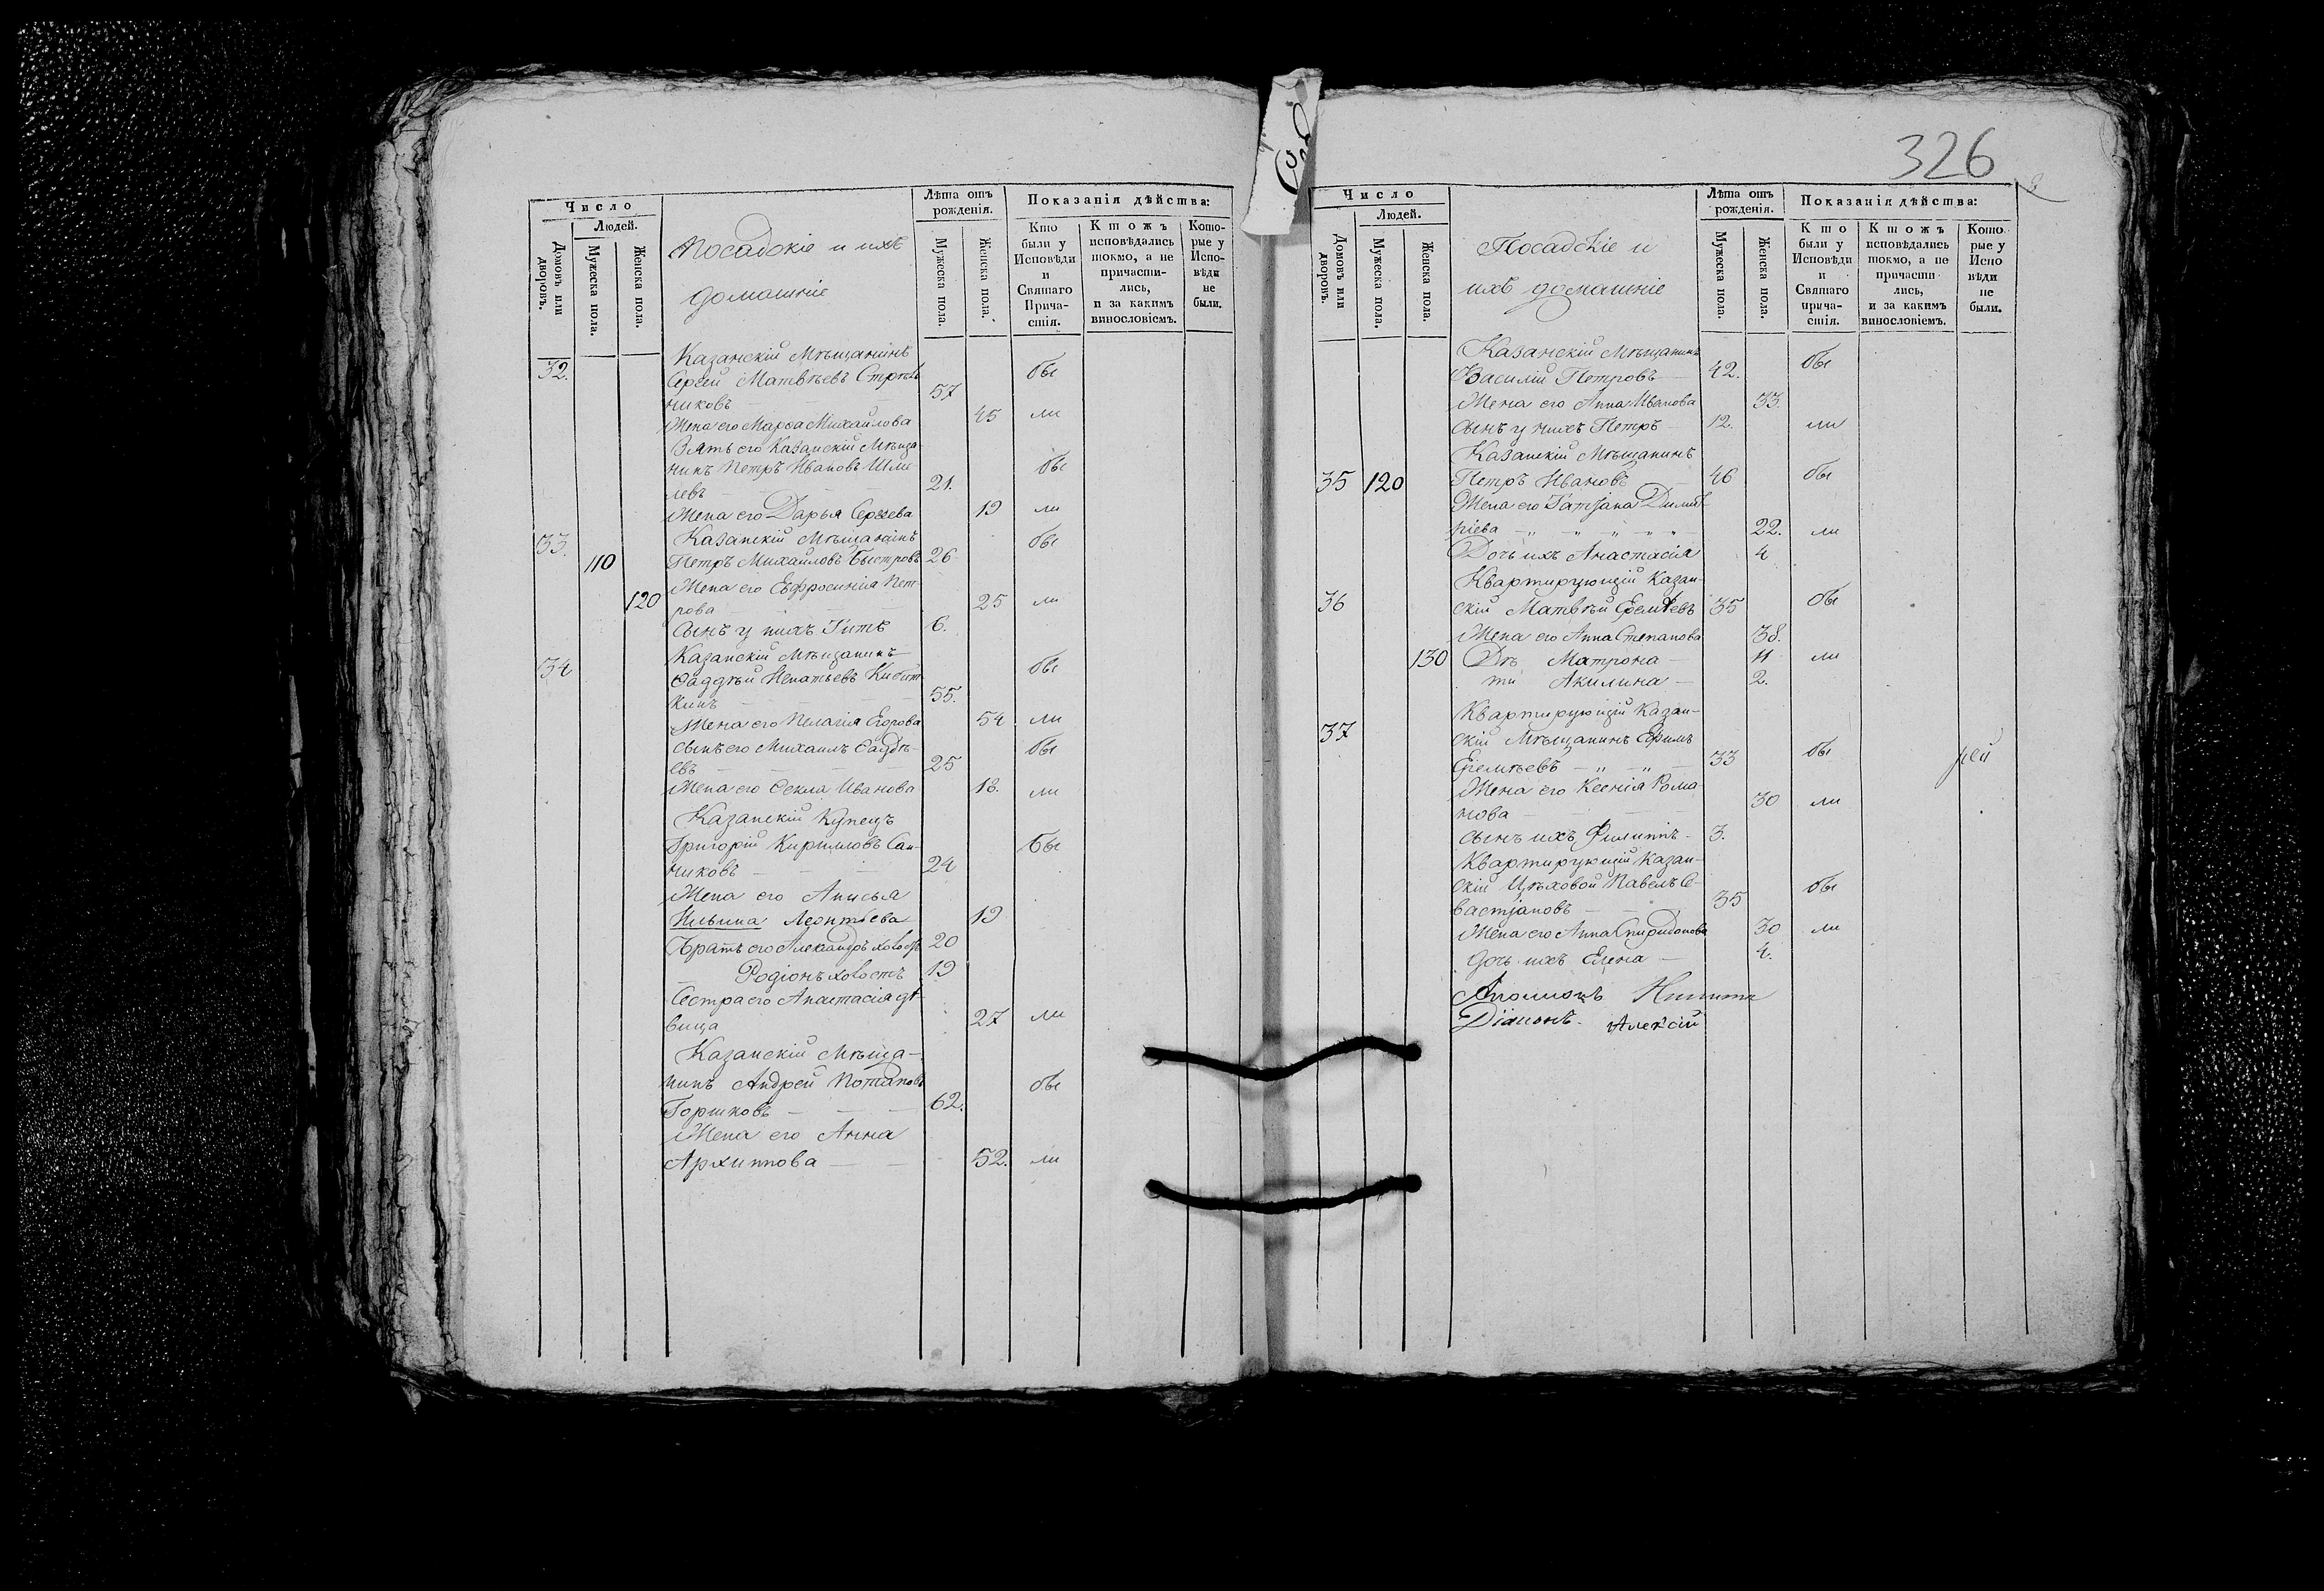 326
Число
Людей.
Домовъ или дворовъ.
Мужеска пола.
Женска пола.
Посадскіе и ихъ
домашніе
Лѣта отъ рожденія.
Мужеска пола.
Женска пола.
Показанія дѣйства:
Кто были у Исповѣди и Святаго Прича-стія.
Ктожъ исповѣдались токмо, а не причасти-лись, и за какимъ винословіемъ.
Кото-рые у Испо-вѣди не были.
Казанскій Мѣщанинъ
32. Сергей Матвѣевъ Стрѣль бы
никовъ 57
Жена его Марѳа Михайлова 45 ли
Зять его Казанскій Мѣща
нинъ Петръ Ивановъ Шми бы
левъ 21.
Жена его Дарья Сергѣева 19 ли
33. Казанскій Мѣщанинъ бы
110 Петръ Михайловъ Быстровъ 26
Жена его Евфросинія Пет-
120 рова 25 ли
Сынъ у нихъ Титъ 6.
Казанскій Мѣщанинъ
34 Ѳаддѣй Игнатьевъ Кибит- бы
кинъ 55.
Жена его Пелагія Егорова 54 ли
сынъ его Михаилъ Ѳаддѣ- бы
евъ 25
Жена его Ѳекла Иванова 18. ли
Казанскій Купецъ
Григорій Кирилловъ Сан- бы
никовъ 24
Жена его Анисья
Ильина Леонтьева 19
Братъ его Александръ холостъ 20
Родіонъ холостъ 19
Сестра его Анастасія дѣ-
вица 27 ли
Казанскій Мѣща-
нинъ Андрей Потаповъ бы
Горшковъ 62.
Жена его Анна
Архиппова 52. ли
Число
Людей.
Домовъ или дворовъ.
Мужеска пола.
Женска пола.
Посадскіе и
ихъ домашніе
Лѣта отъ рожденія.
Мужеска пола.
Женска пола.
Показанія дѣйства:
Кто были у Исповѣди и Святаго прича-стія.
Ктожъ исповѣдались токмо, а не причасти-лись, и за какимъ винословіемъ.
Кото-рые у Испо вѣди не были.
Казанскій Мѣщанинъ
Василій Петровъ 42. бы
Жена его Анна Иванова 33.
Сынъ у нихъ Петръ 12. ли
Казанскій Мѣщанинъ
35 120 Петръ Ивановъ 46 бы
Жена его Татіана Димит-
ріева 22. ли
Дочь ихъ Анастасія 4
Квартирующій Казан-
36 скій Матвѣй Еремѣевъ 35 бы
Жена его Анна Степанова 38.
130 Дѣ Матрона 11 ли
ти Акилина 2.
Квартирующій Казан-
37 скій Мѣщанинъ Ефимъ
Еремѣевъ 33 бы рей
Жена его Ксенія Рома
нова 30 ли
сынъ ихъ Филиппъ 3.
Квартирующій Казан-
скій Цѣховой Павелъ Се- бы
вастіановъ 35
Жена его Анна Спиридонова 30 ли
дочь ихъ Елена 4.
Діаконъ Алексій